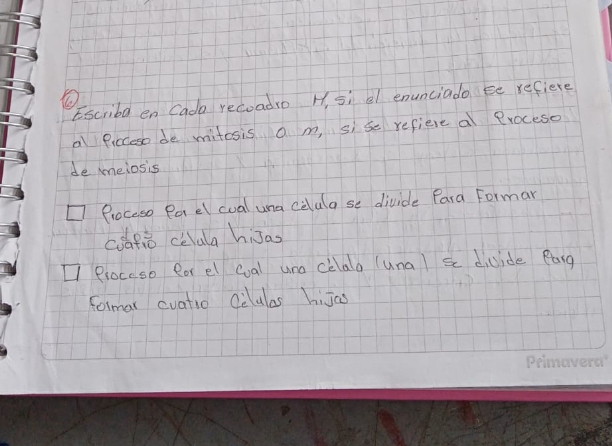 6 Escriba en Cada recuadro H, si el enunciado se refiere
al Proceso de mitosis o m, si se refiere al Proceso
de meiosis
Proceso Por el cual una célula se divide Para Formar
célula hijas
Proceso Por el cual una célula (una) se divide Para
Formar cuatro Células hijas
Primavera